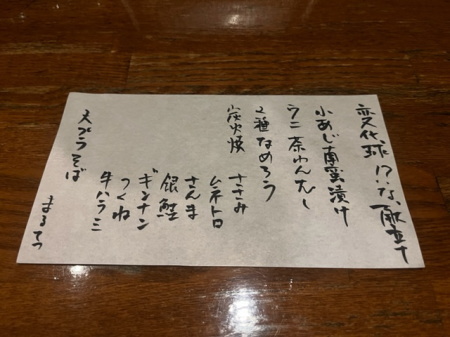 変化球!?な、献立
小あじ南蛮漬け
ウニ茶わんむし
2種なめろう
炭火焼
ささみ
ムネトロ
さんま
銀鮭
ギンナン
つくね
牛ハラミ
天ぷらそば
まるてつ